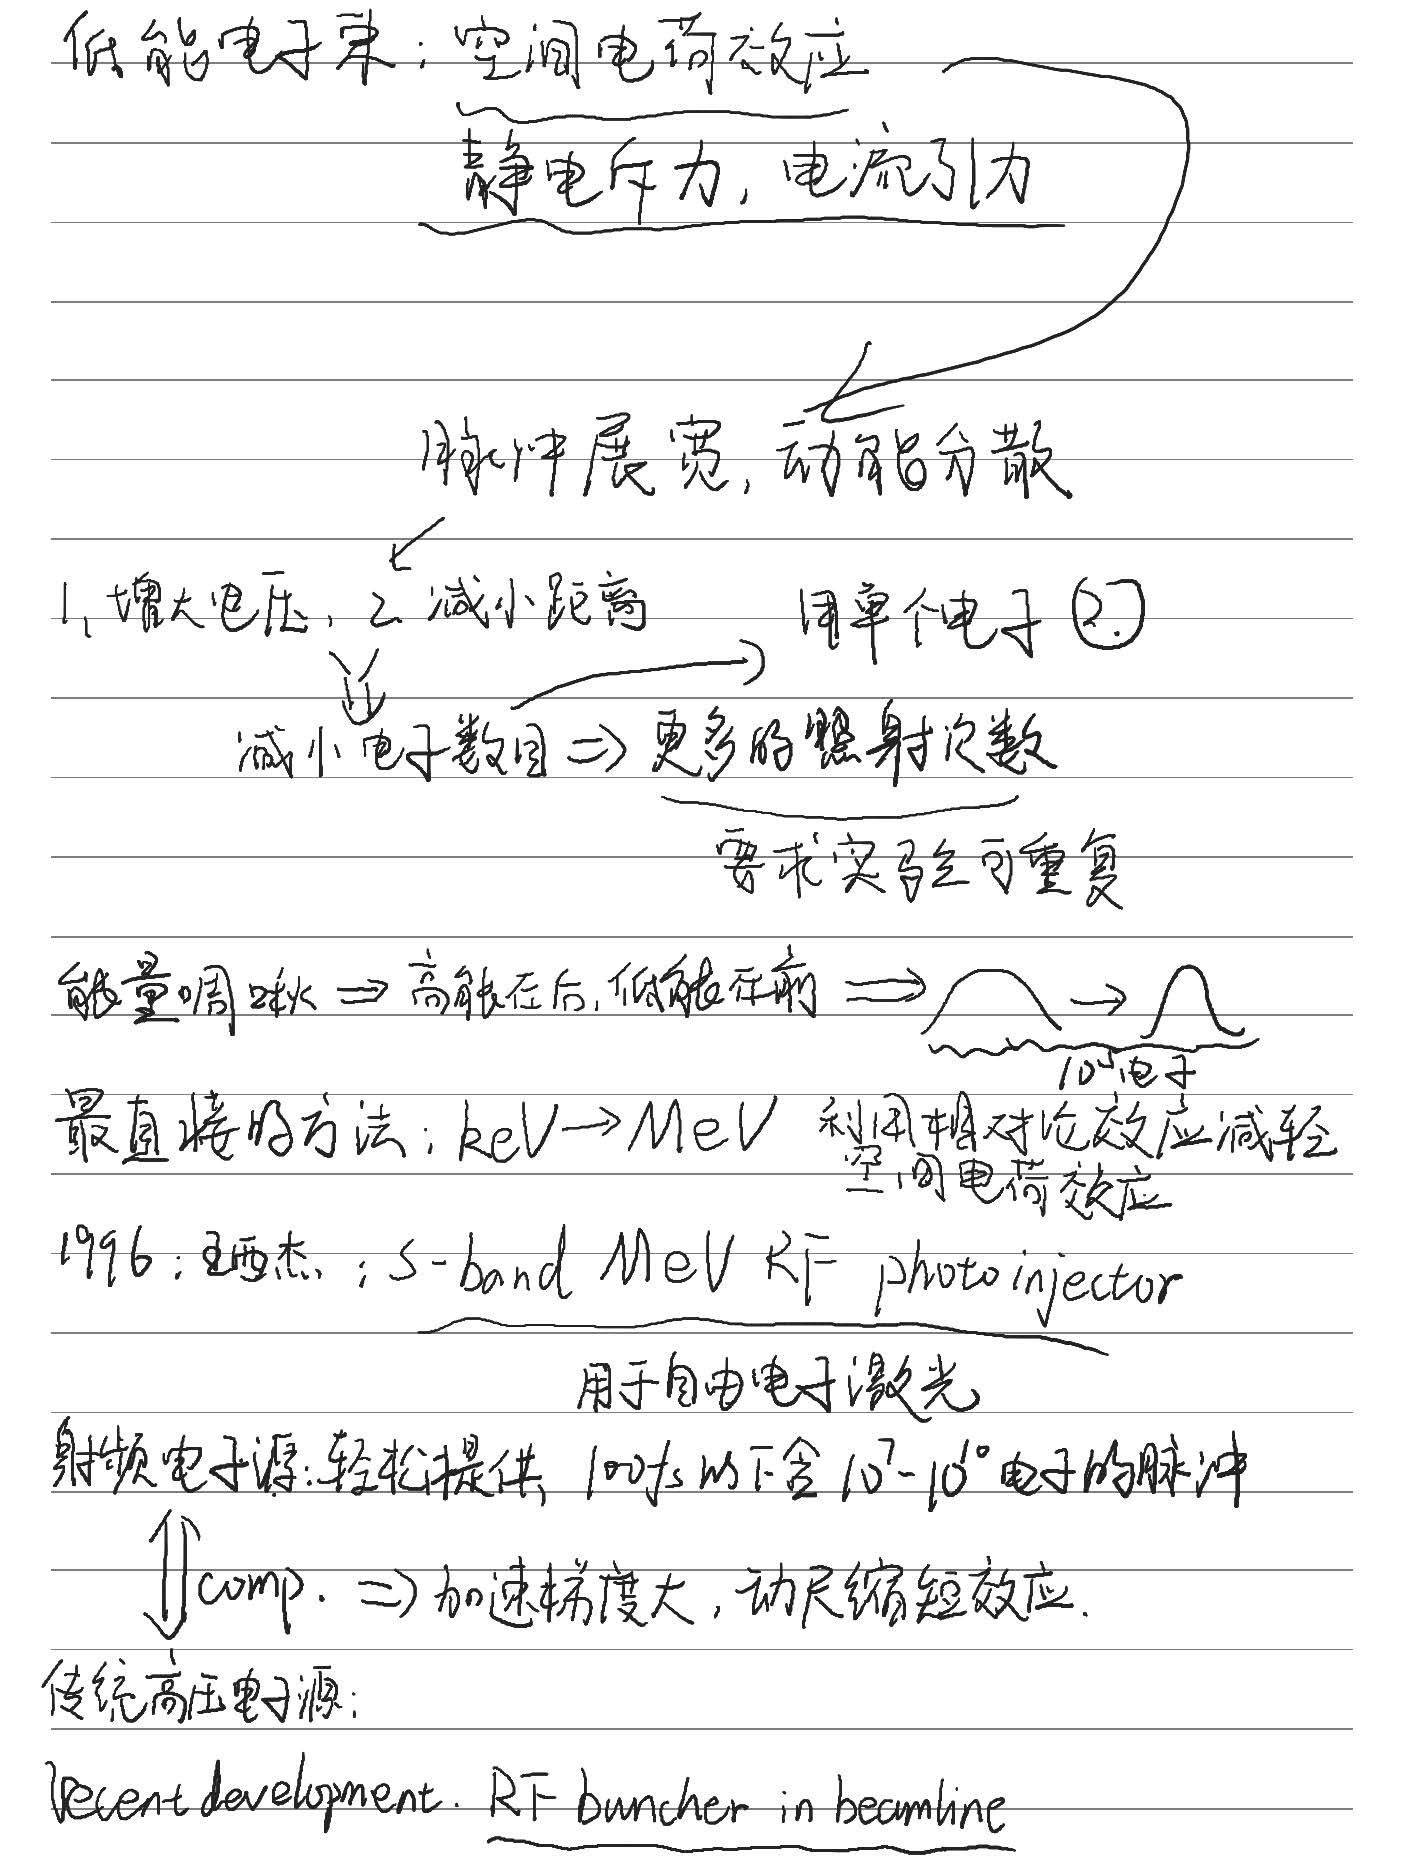 低能电子束：空间电荷效应
静电斥力，电流引力
脉冲展宽，动能分散
1、增大电压，2、减小距离 用单个电子 ②.
减小电子数目 ⇒ 更多的照射次数
要求实验可重复
能量啁啾 ⇒ 高能在后，低能在前 ⇒ →
10⁵电子
最直接的方法：keV → MeV 利用相对论效应减轻
空间电荷效应
1996：王西杰：S-band MeV RF photoinjector
用于自由电子激光
射频电子源：轻松提供 100fs以下含10⁷-10¹⁰电子的脉冲
comp. ⇒ 加速梯度大，动尺缩短效应.
传统高压电子源：
Recent development. RF buncher in beamline